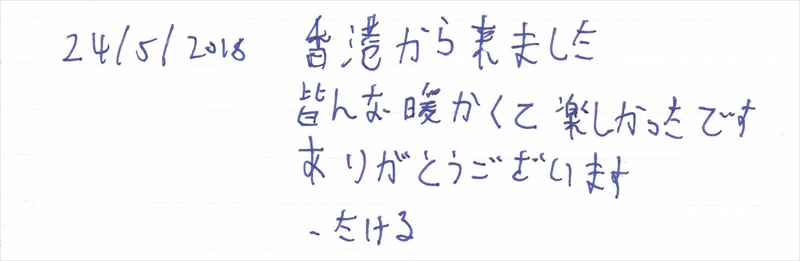 24/5/2018 香港から来ました
皆んな暖かくて楽しかったです
ありがとうございます
-たける